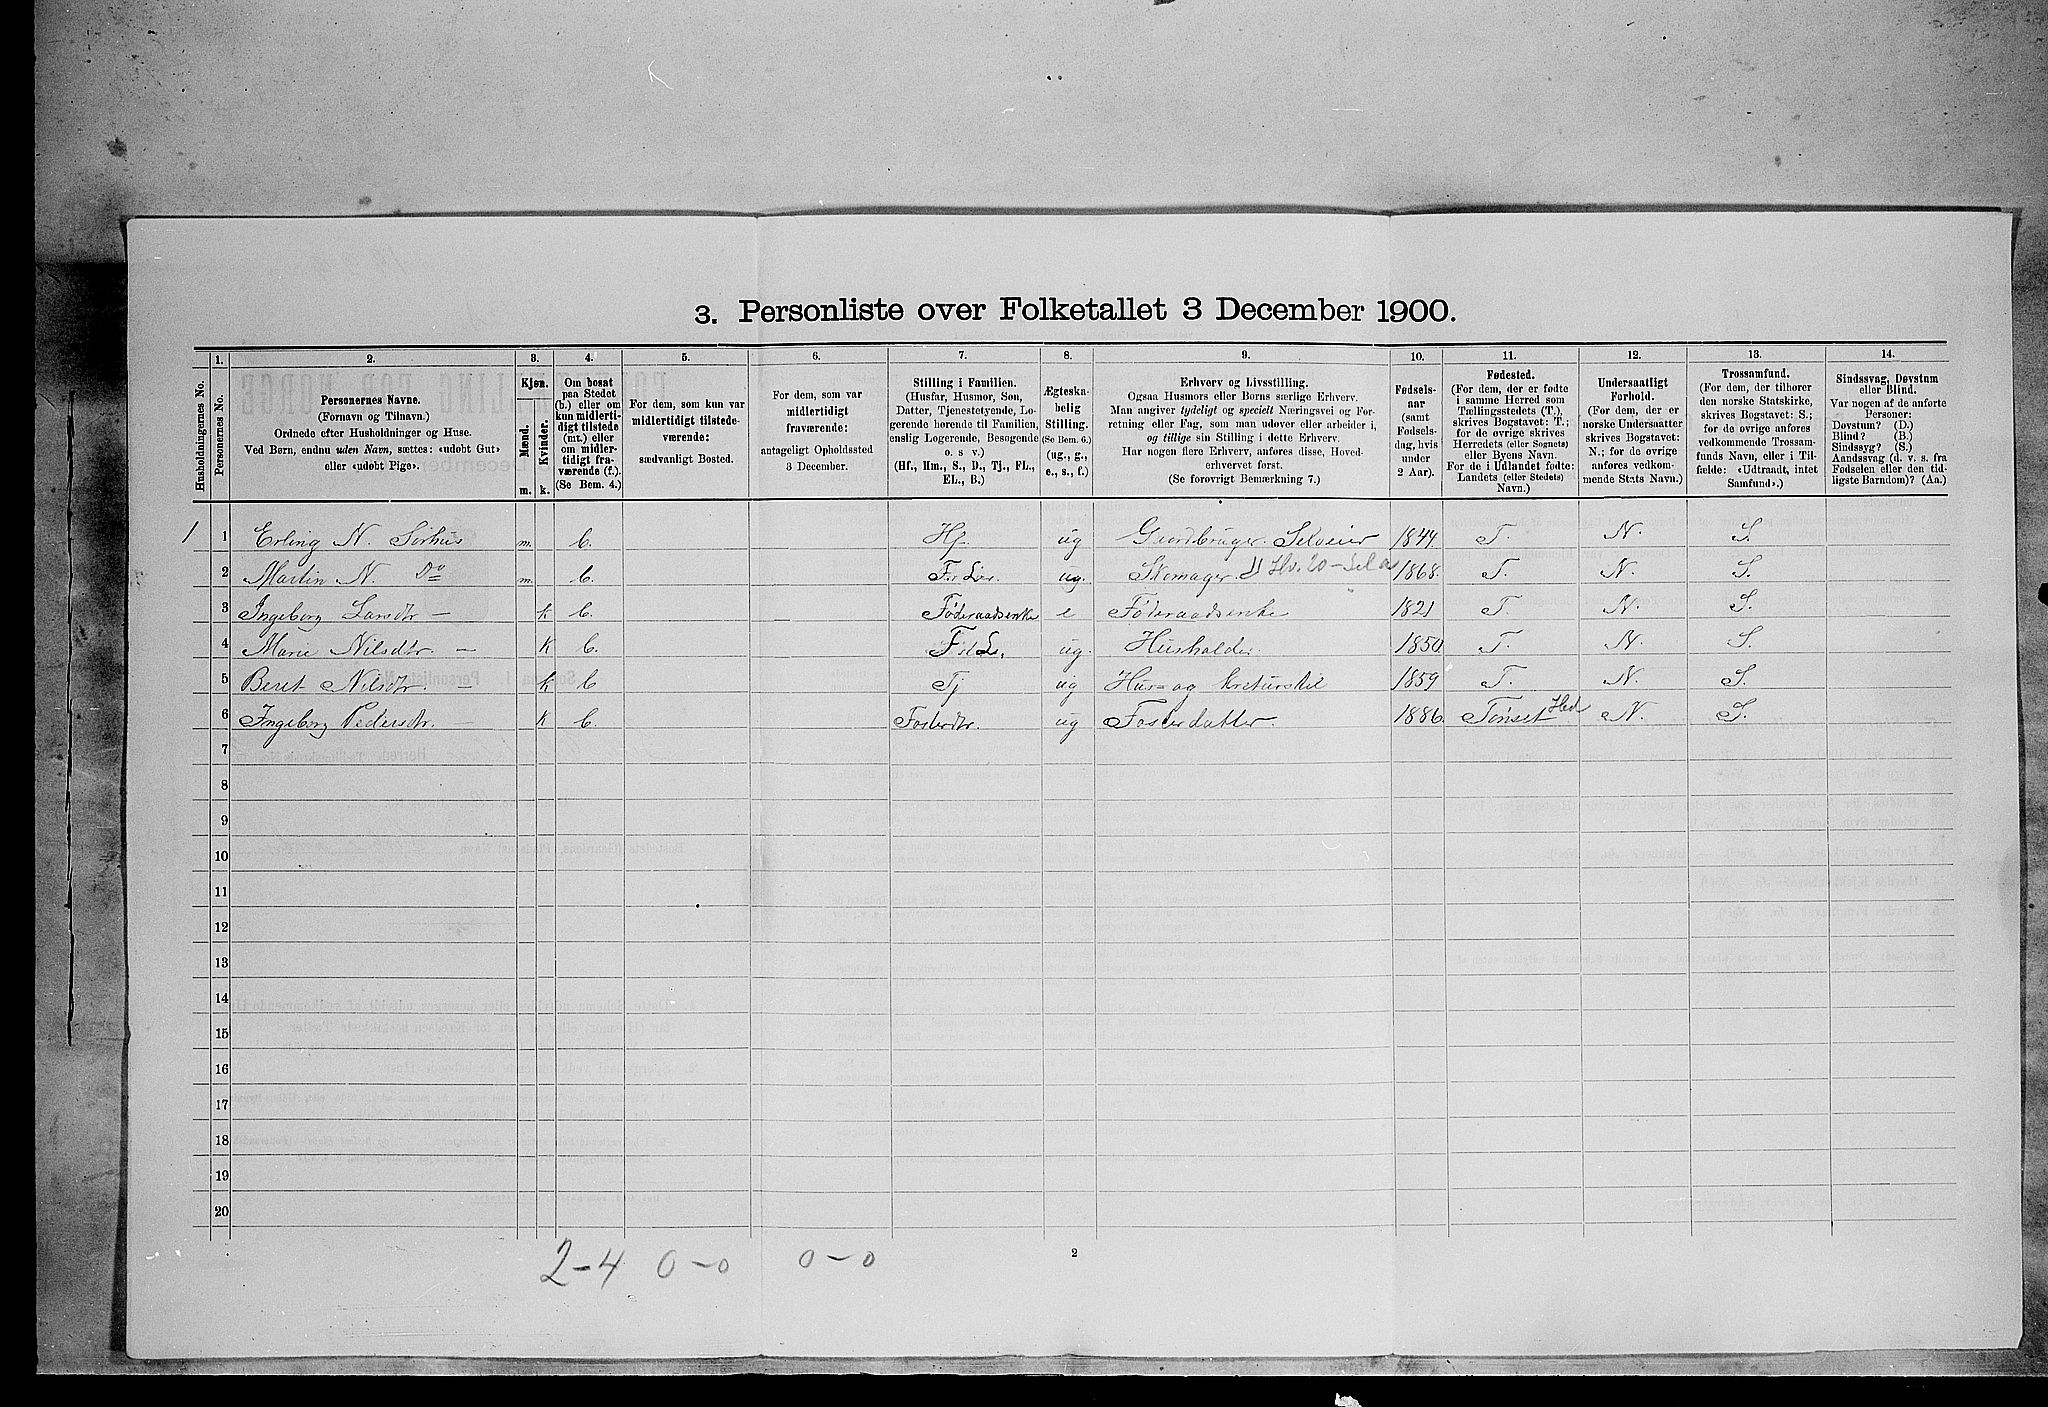 3. Personliste over Folketallet 3 December 1900.
Husholdningernes No.
1.
Personernes No.
2.
Personernes Navne.
(Fornavn og Tilnavn.)
Ordnede efter Husholdninger og Huse.
Ved Børn, endnu uden Navn, sættes: «udøbt Gut»
eller «udøbt Pige».
3.
Kjøn.
Mænd.
Kvinder.
m.
k.
4.
Om bosat
paa Stedet
(b.) eller om
kun midlerti-
digt tilstede
(mt.) eller
om midler-
tidigt fra-
værende (f.).
(Se Bem. 4.)
5.
For dem, som kun var
midlertidigt tilstede-
værende:
sædvanligt Bosted.
6.
For dem, som var
midlertidigt
fraværende:
antageligt Opholdssted
3 December.
7.
Stilling i Familien.
(Husfar, Husmor, Søn,
Datter, Tjenestetyende, Lo-
gerende hørende til Familien,
enslig Logerende, Besøgende
o. s v.)
(Hf., Hm., S., D., Tj., FL.,
EL., B.)
8.
Ægteska-
belig
Stilling.
(Se Bem. 6.)
(ug., g.,
e., s., f.)
9.
Erhverv og Livsstilling.
Ogsaa Husmors eller Børns særlige Erhverv.
Man angiver tydeligt og specielt Næringsvei og For-
retning eller Fag, som man udøver eller arbeider i,
og tillige sin Stilling i dette Erhverv.
Har nogen flere Erhverv, anføres disse, Hoved-
erhvervet først.
(Se forøvrigt Bemærkning 7.)
10.
Fødsels-
aar
(samt
Fødsels-
dag, hvis
under
2 Aar).
11.
Fødested.
(For dem, der er fødte
i samme Herred som
Tællingsstedets (T.),
skrives Bogstavet: T.;
for de øvrige skrives
Herredets (eller Sognets)
eller Byens Navn.
For de i Udlandet fødte:
Landets (eller Stedets)
Navn.)
12.
Undersaatligt
Forhold.
(For dem, der er
norske Undersaatter
skrives Bogstavet:
N.; for de øvrige
anføres vedkom-
mende Stats Navn.)
13.
Trossamfund.
(For dem, der tilhører
den norske Statskirke,
skrives Bogstavet: S.;
for de øvrige anføres
vedkommende Trossam-
funds Navn, eller i Til-
fælde: «Udtraadt, intet
Samfund».)
14.
Sindssvag, Døvstum
eller Blind.
Var nogen af de anførte
Personer:
Døvstum? (D.)
Blind? (B.)
Sindssyg? (S.)
Aandssvag (d. v. s. fra
Fødselen eller den tid-
ligste Barndom)? (Aa.)
1 1 Erling N. Sørhus m. b. Hf. ug Gaardbruger Selveier 1844 T. N. S.
2 Martin N. Do m. b. ug. Skomager 1868. T. N. S.
3 Ingeborg Larsdtr — k b. Føderaadsenke e Føderaadsenke 1821 T. N. S.
4 Marie Nilsdtr. — k b. ug. Husholder. 1850 T. N S.
5 Beret Nilsdtr. — k b Tj ug Hus- og kreturstel 1859 T. N. S.
6 Ingeborg Pedersdtr. — k b. Fosterdtr. ug Fosterdatter. 1886. Tønset Hed N. S.
7
8
9
10
11
12
13
14
15
16
17
18
19
20
2-4 0-0 0-0
2